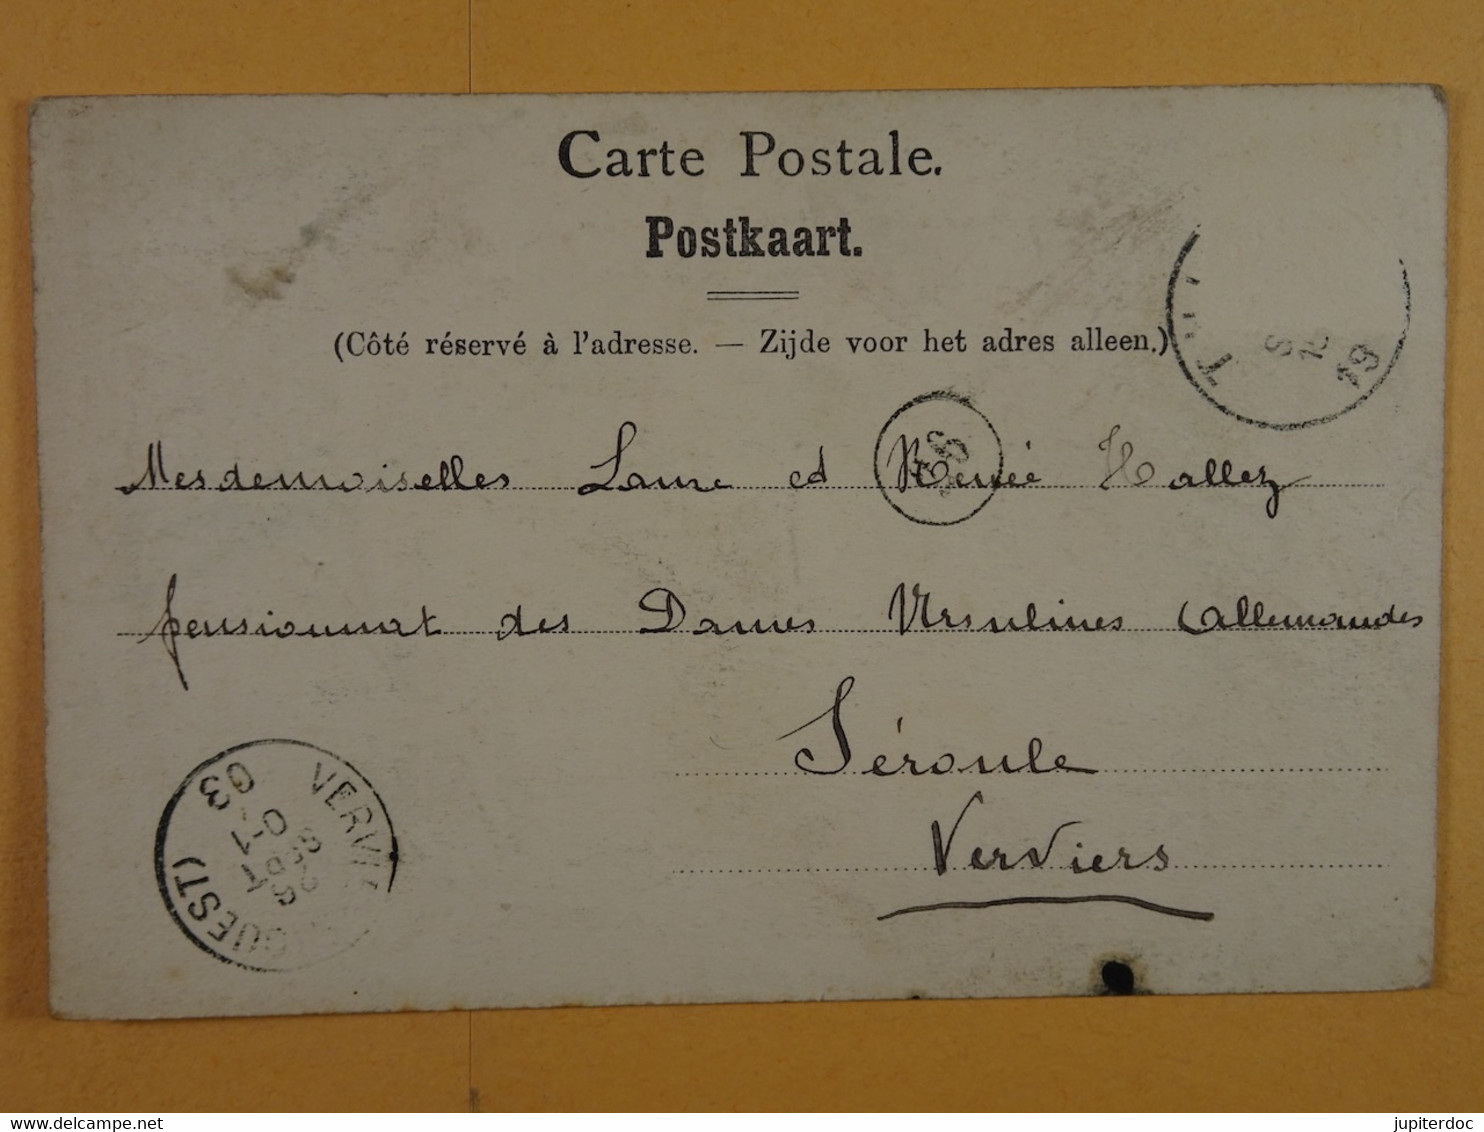 Carte Postale.
Postkaart.
(Côté réservé à l'adresse. — Zijde voor het adres alleen.)
Mesdemoiselles Laure et Renée Hallez
pensionnat des Dames Ursulines Allemandes
Séroule
Verviers
VERVI
(OUEST)
26
SEPT
03
delcampe.net
jupiterdoc